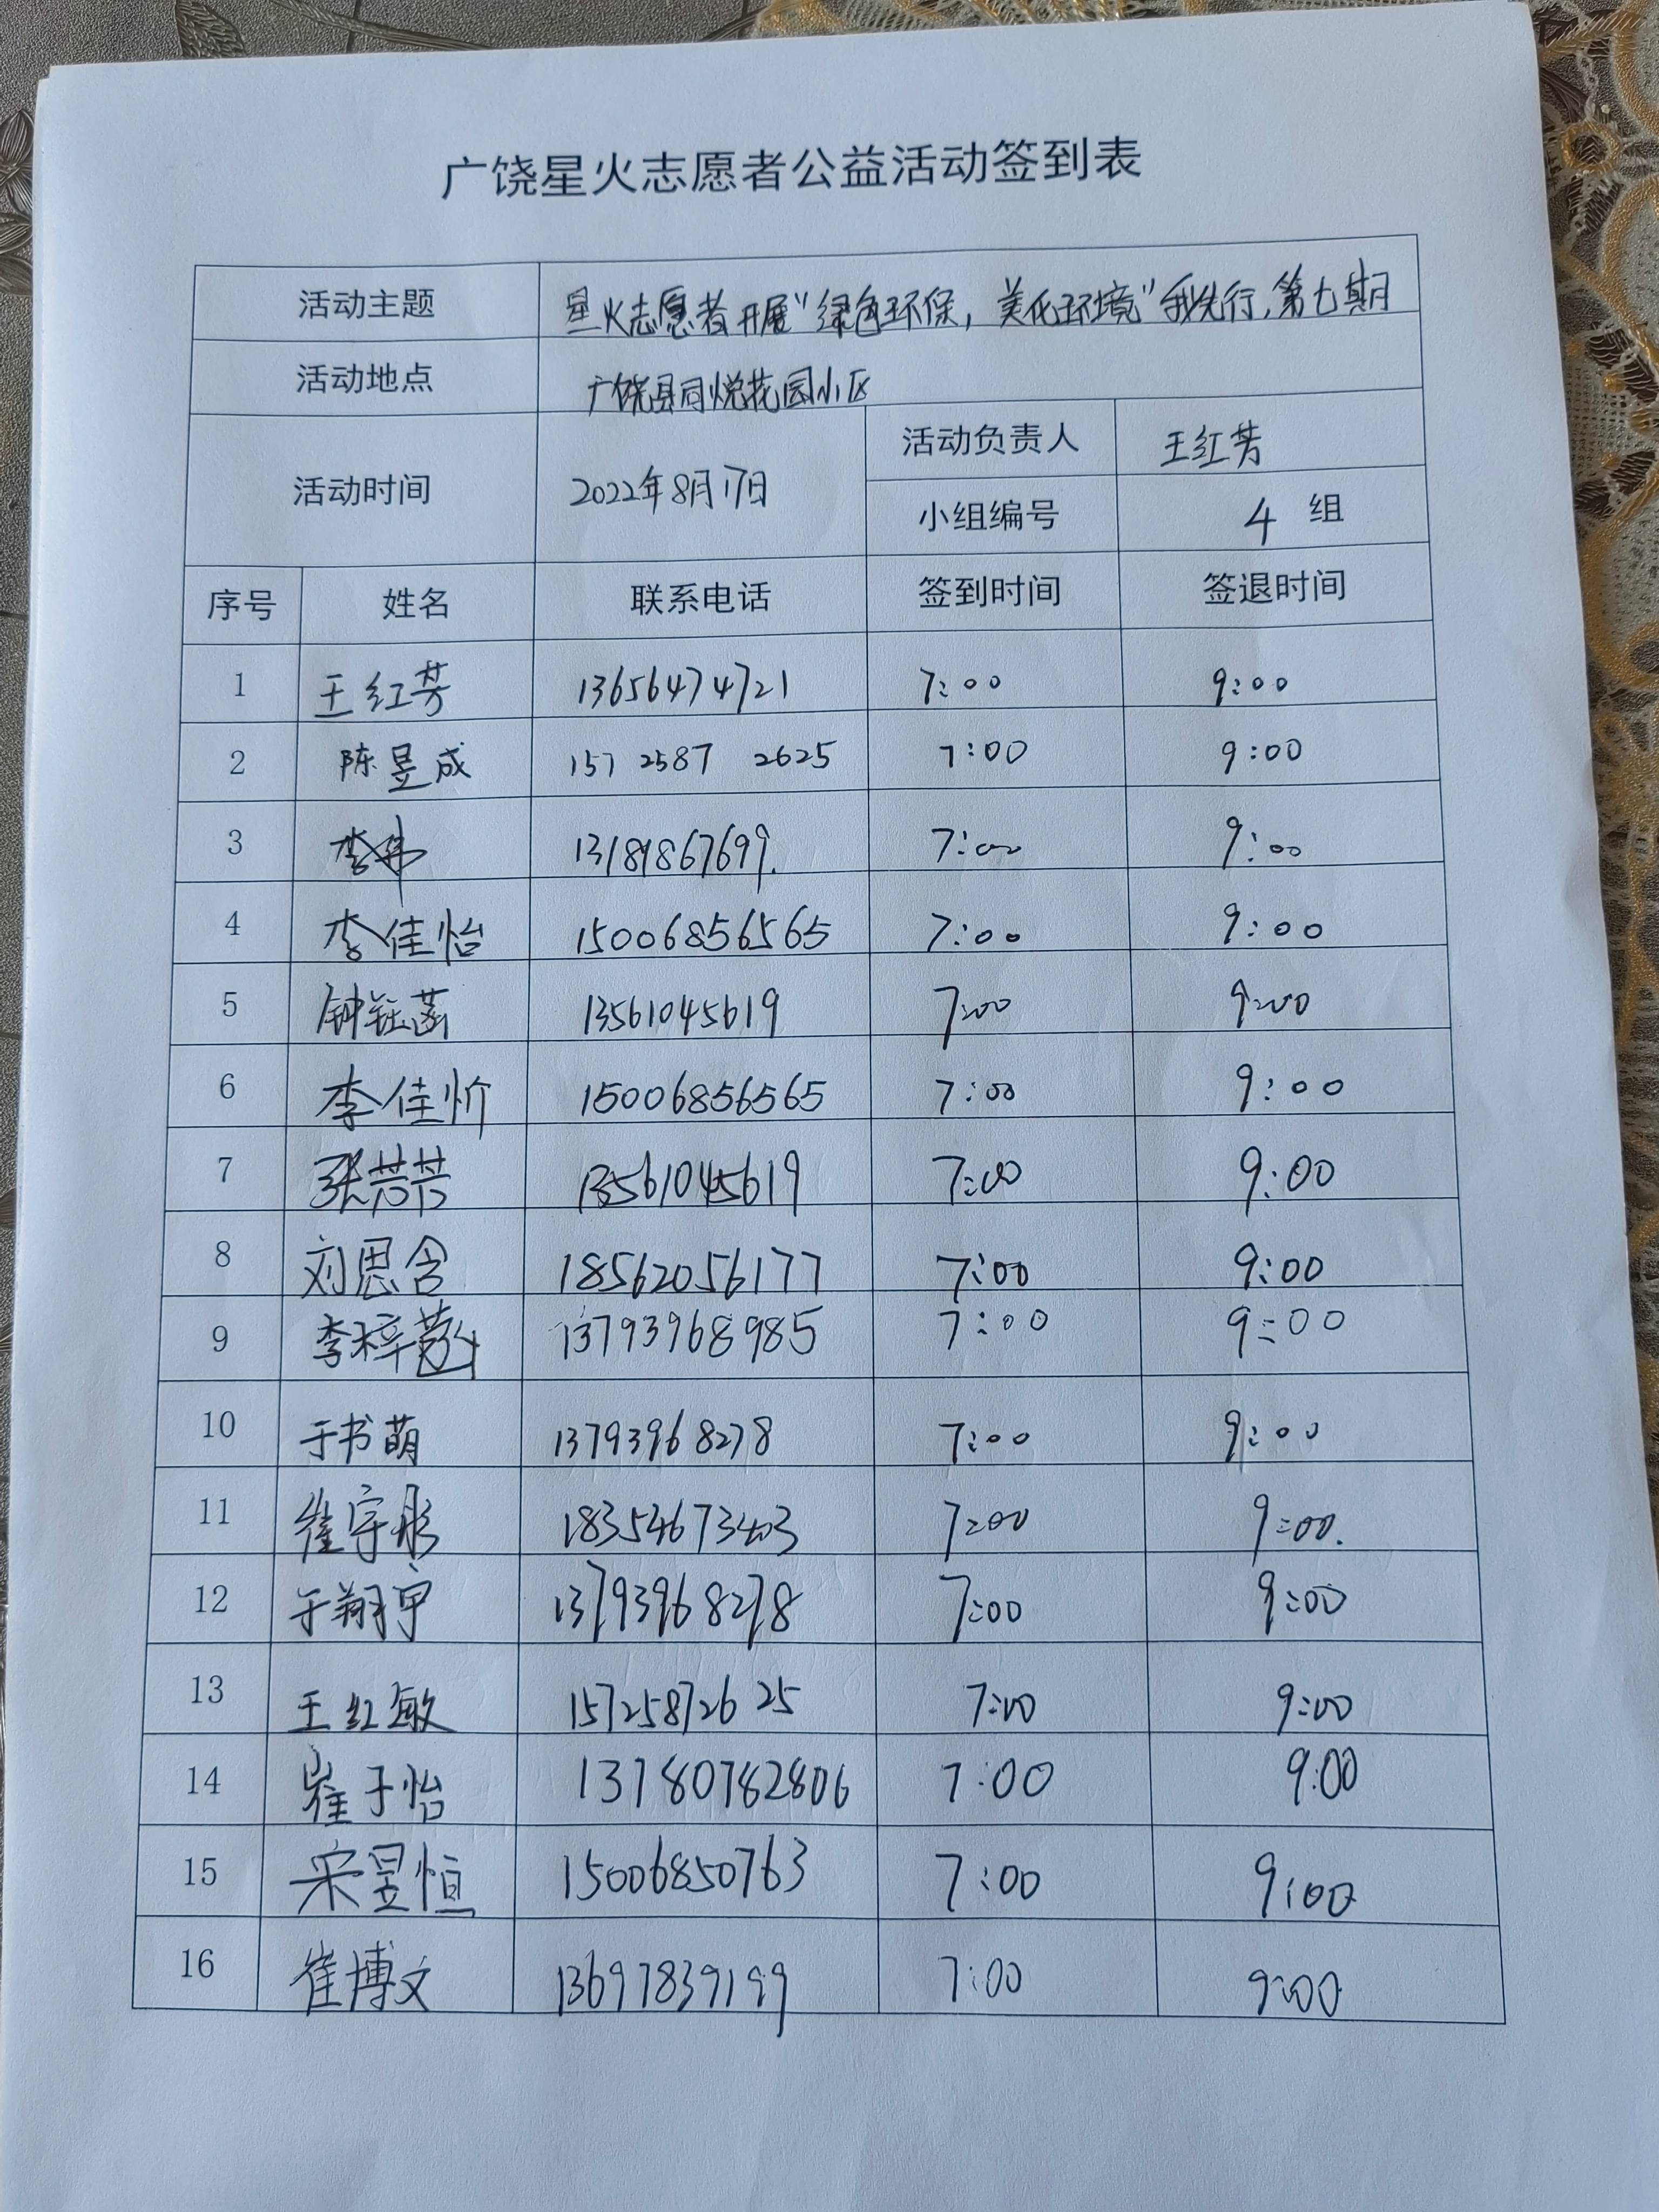 广饶星火志愿者公益活动签到表
活动主题 星火志愿者开展"绿色环保，美化环境"我先行，第七期
活动地点 广饶县同悦花园小区
活动时间 2022年8月17日 活动负责人 王红芳
小组编号 4 组
序号 姓名 联系电话 签到时间 签退时间
1 王红芳 13656474721 7:00 9:00
2 陈昱成 157 2587 2625 7:00 9:00
3 李伟 13181867699. 7:00 9:00
4 李佳怡 15006856565 7:00 9:00
5 钟钰菡 13561045619 7:00 9:00
6 李佳忻 15006856565 7:00 9:00
7 张芸芸 13561045619 7:00 9:00
8 刘思含 18562056177 7:00 9:00
9 李梓 13793968985 7:00 9:00
10 于书萌 13793968278 7:00 9:00
11 崔宇彤 18354673403 7:00 9:00.
12 于翔宇 13793968278 7:00 9:00
13 王红敏 15725872625 7:00 9:00
14 崔于怡 13780782806 7:00 9:00
15 宋昱恒 15006850763 7:00 9:00
16 崔博文 13697839199 7:00 9:00